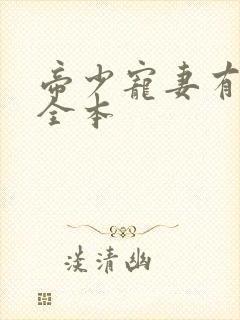 帝少寵妻有
全本
淡清幽